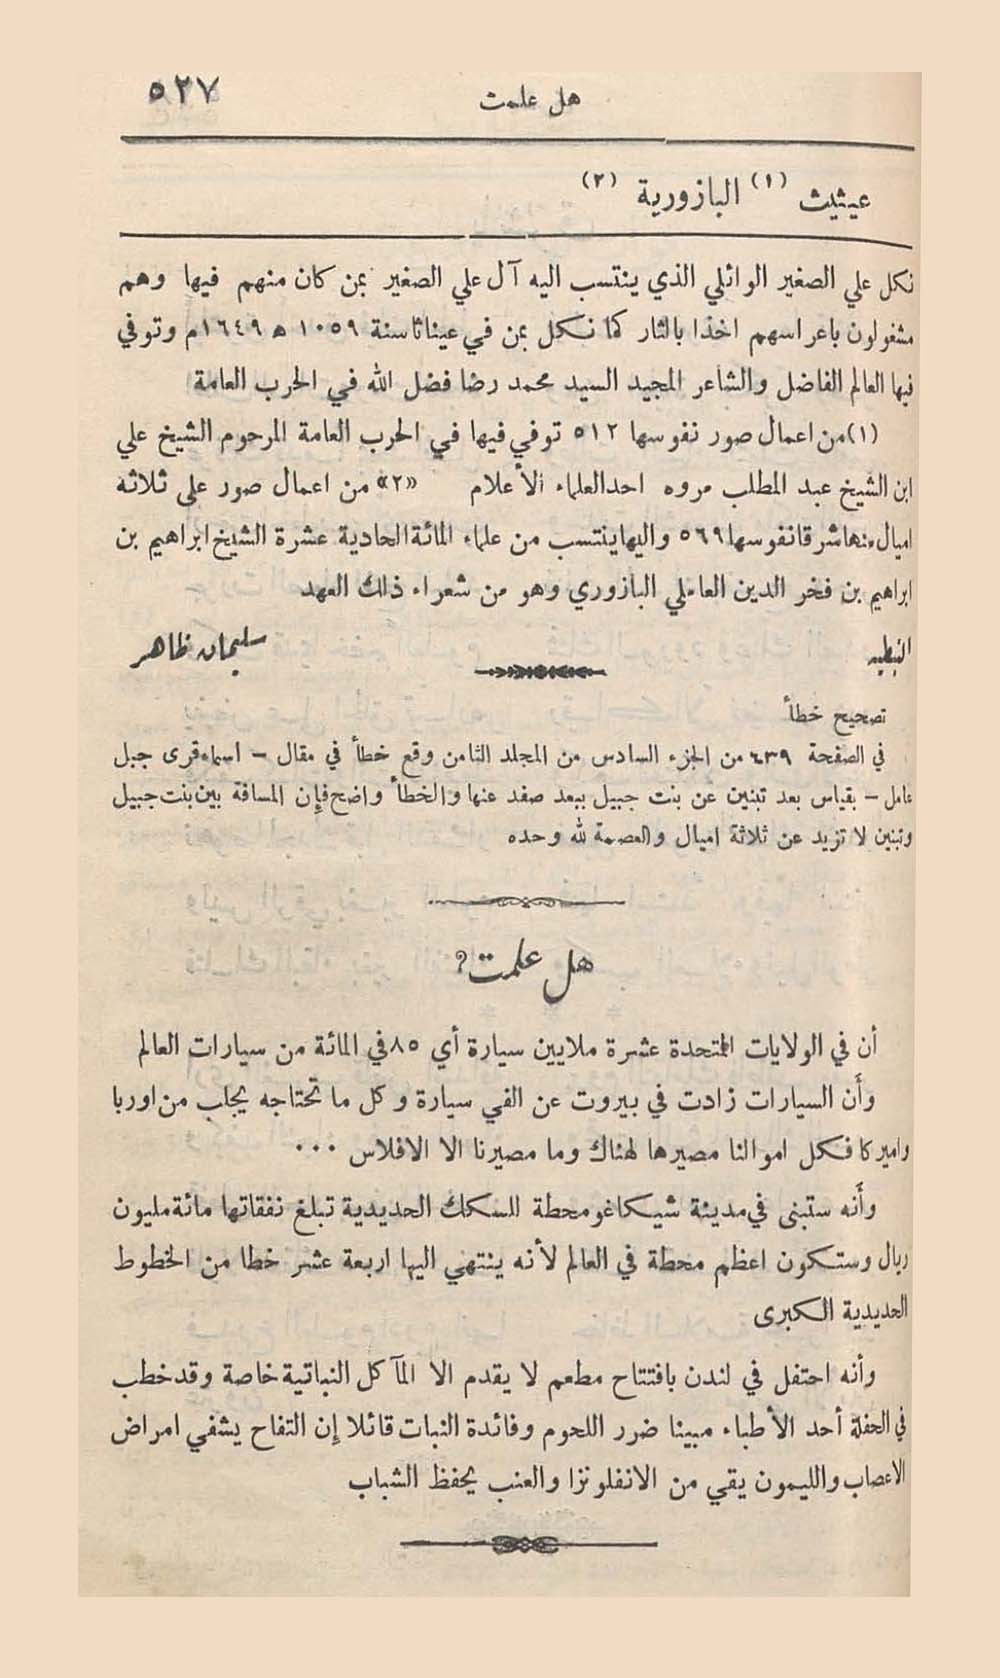 هل علمت ٥٢٧
عيثيث (١) البازورية (٢)
نكل علي الصغير الوائلي الذي ينتسب اليه آل علي الصغير بمن كان منهم فيها وهم
مشغولون باعراسهم اخذا بالثار كما نكل بمن في عيناثا سنة ١٠٥٩ ه ١٦٤٩م وتوفي
فيها العالم الفاضل والشاعر المجيد السيد محمد رضا فضل الله في الحرب العامة
(١) من اعمال صور نفوسها ٥١٢ توفي فيها في الحرب العامة المرحوم الشيخ علي
ابن الشيخ عبد المطلب مروه احد العلماء الأعلام «٢» من اعمال صور على ثلاثه
اميال منها شرقا نفوسها ٥٦٩ واليها ينتسب من علماء المائة الحادية عشرة الشيخ ابراهيم بن
ابراهيم بن فخر الدين العاملي البازوري وهو من شعراء ذلك العهد
النبطيه سليمان ظاهر
تصحيح خطأ
في الصفحة ٤٣٩ من الجزء السادس من المجلد الثامن وقع خطأ في مقال – اسماء قرى جبل
عامل – بقياس بعد تبنين عن بنت جبيل ببعد صفد عنها والخطأ واضح فإن المسافة بين بنت جبيل
وتبنين لا تزيد عن ثلاثة اميال والعصمة لله وحده
هل علمت؟
أن في الولايات المتحدة عشرة ملايين سيارة أي ٨٥ في المائة من سيارات العالم
وأن السيارات زادت في بيروت عن الفي سيارة وكل ما تحتاجه يجلب من اوربا
واميركا فكل اموالنا مصيرها لهناك وما مصيرنا الا الافلاس ...
وأنه ستبنى في مدينة شيكاغو محطة للسكك الحديدية تبلغ نفقاتها مائة مليون
ريال وستكون اعظم محطة في العالم لأنه ينتهي اليها اربعة عشر خطا من الخطوط
الحديدية الكبرى
وأنه احتفل في لندن بافتتاح مطعم لا يقدم الا المآكل النباتية خاصة وقد خطب
في الحفلة أحد الأطباء مبينا ضرر اللحوم وفائدة النبات قائلا إن التفاح يشفي امراض
الاعصاب والليمون يقي من الانفلونزا والعنب يحفظ الشباب